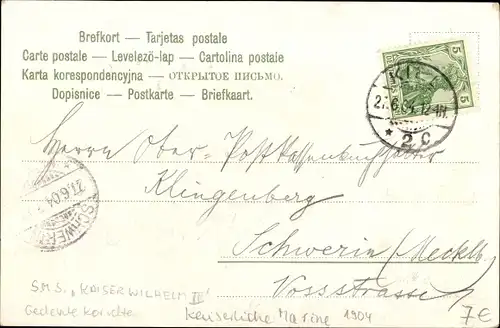 Brefkort — Tarjetas postale
Carte postale — Levelező-lap — Cartolina postale
Karta korespondencyjna — ОТКРЫТОЕ ПИСЬМО.
Dopisnice — Postkarte — Briefkaart.
5 5
KIEL
27.6.04.12-1N.
* 2 C
Herrn Ober-Postkassenbuchhalter
Klingenberg
27.6.04
SCHWERIN
Schwerin (Mecklb.)
Vossstrasse
S.M.S. „KAISER WILHELM II"
Kaiserliche Marine 1904
7€